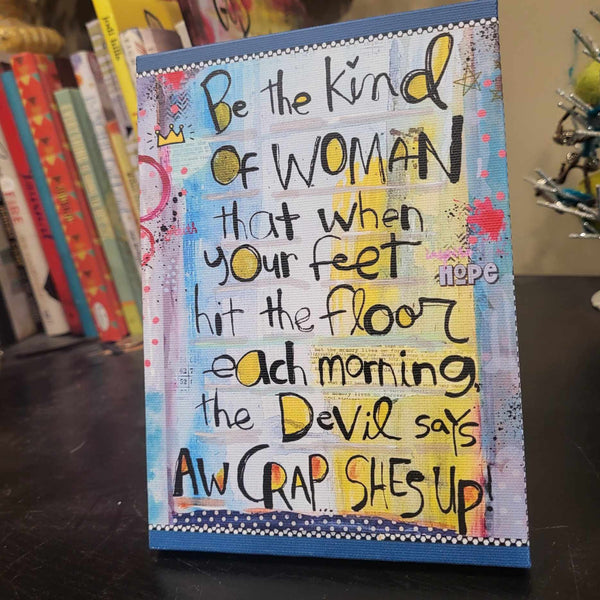 Be the kind
OF WOMAN
that when
your feet
HOPE
hit the floor
each morning,
the Devil says
AW CRAP... SHES UP!